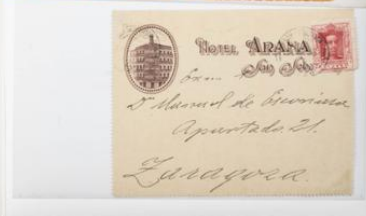 HOTEL ARANA
San Seb
Exmo
Dn Manuel de Escoriaza
Apartado 21.
Zaragoza.